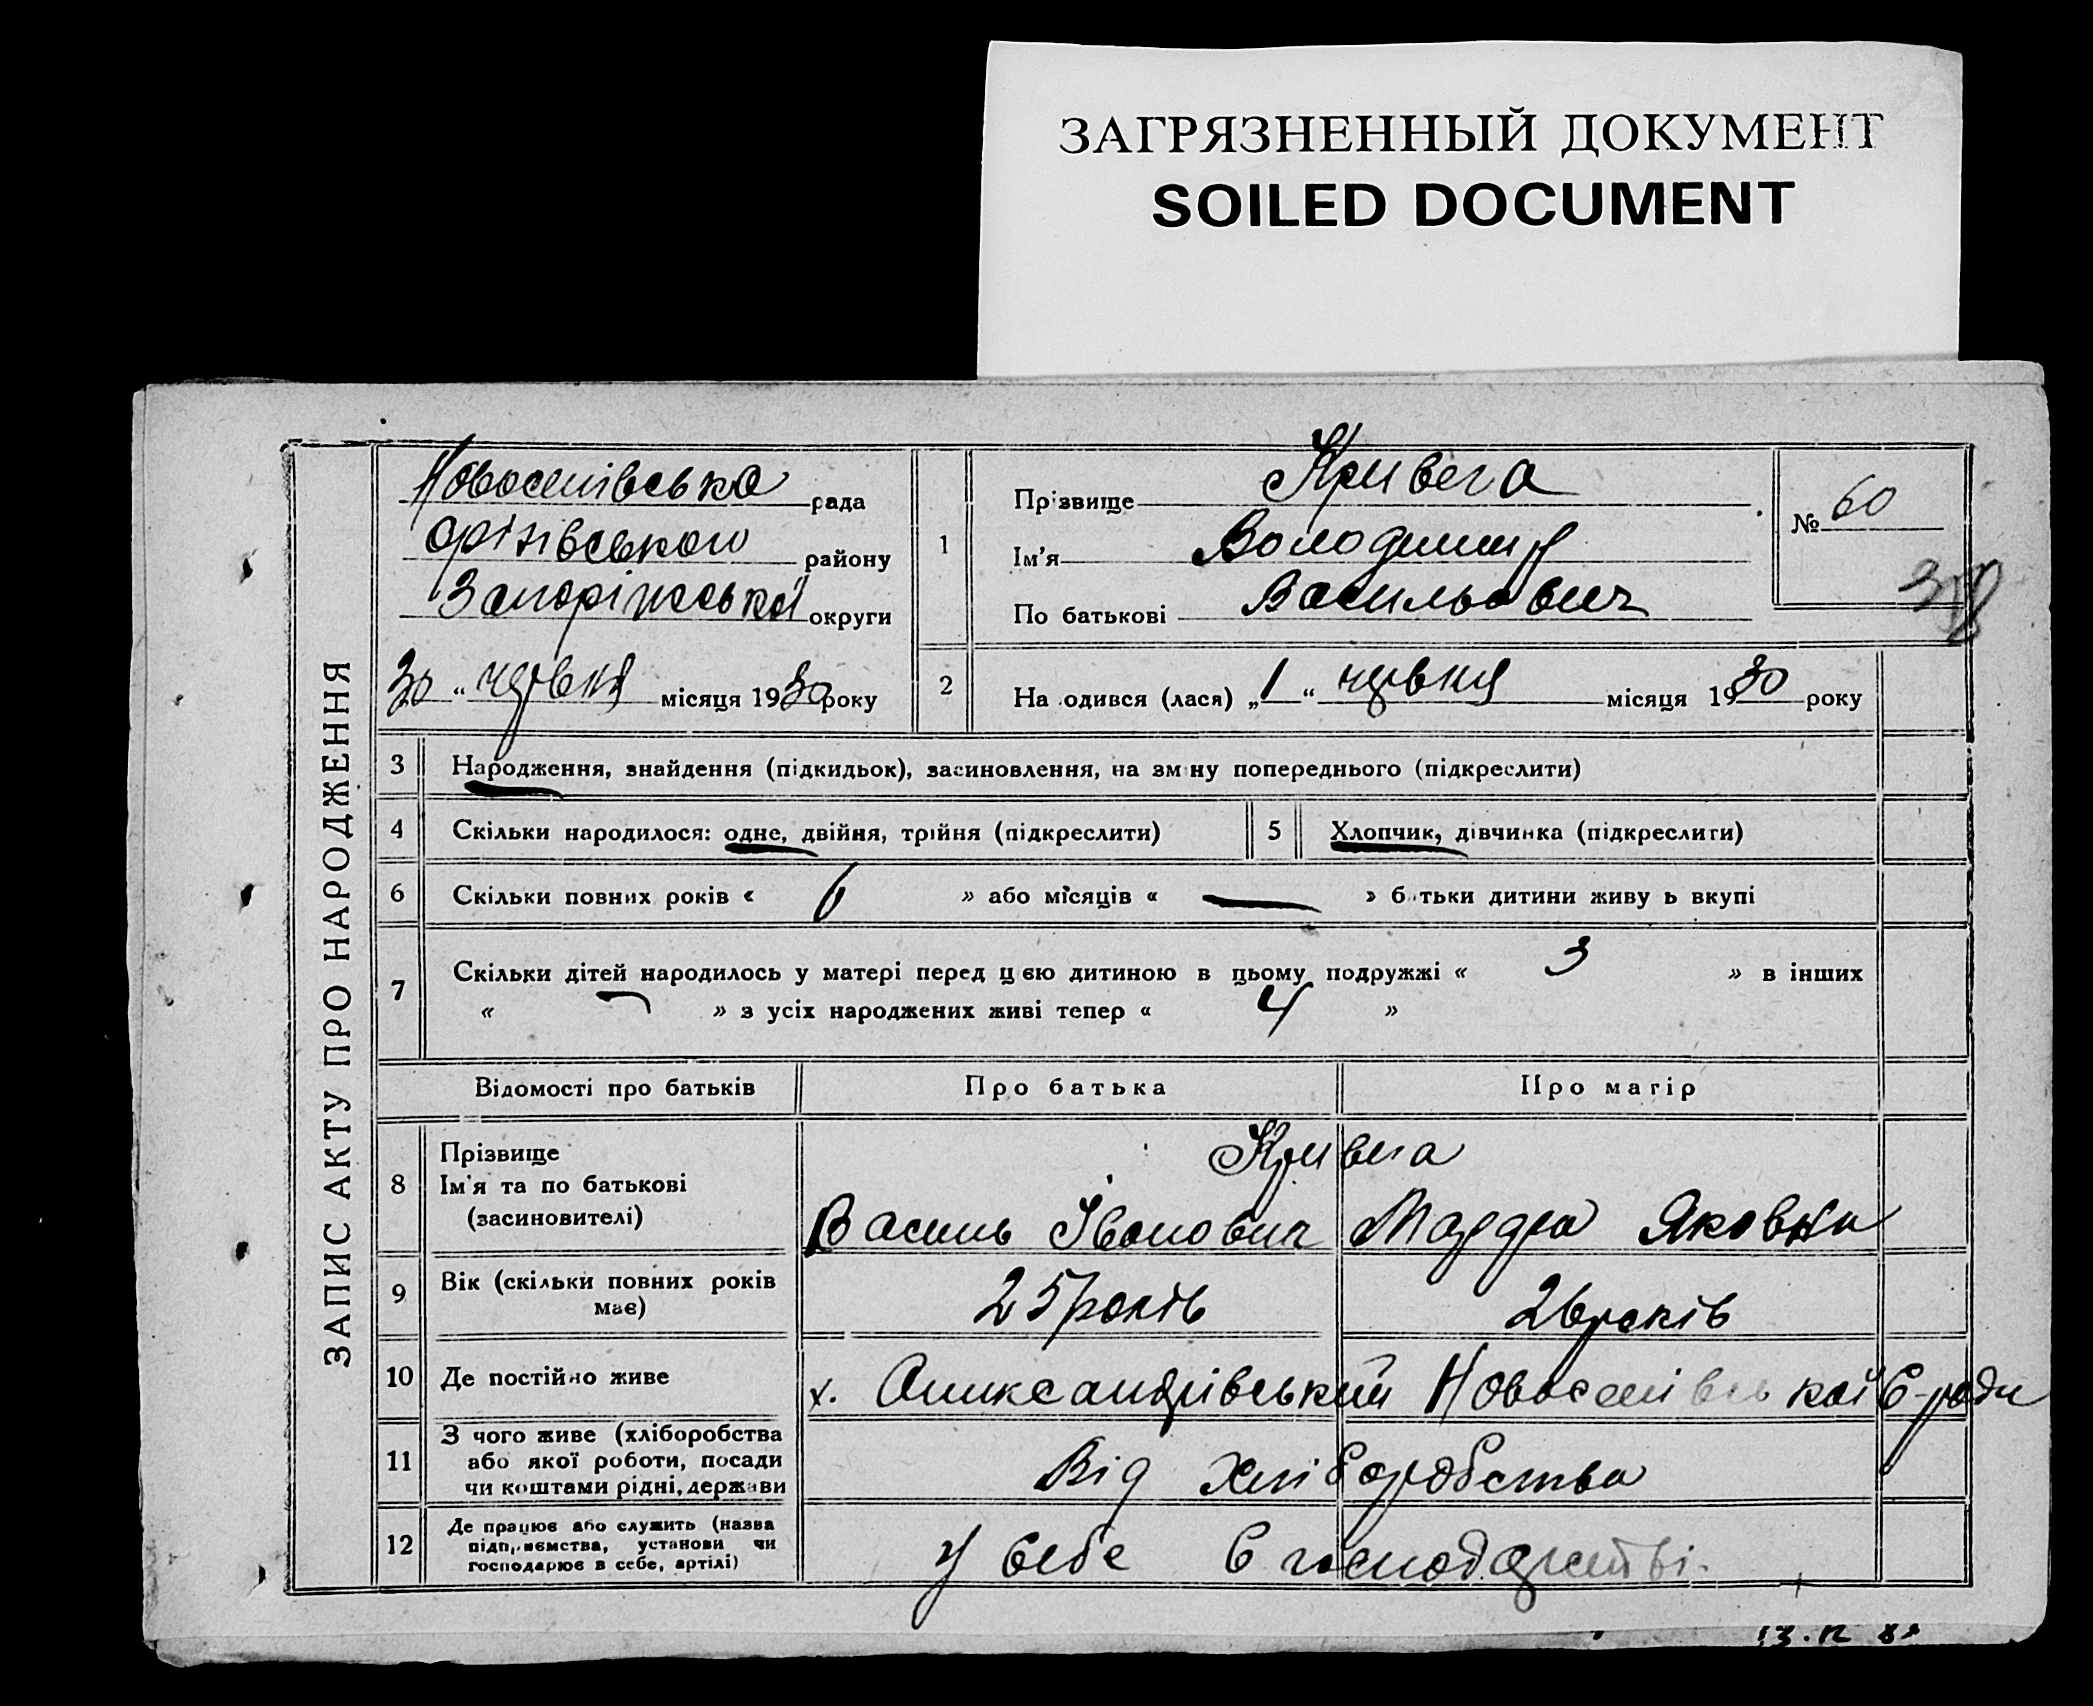 ЗАГРЯЗНЕННЫЙ ДОКУМЕНТ
SOILED DOCUMENT
ЗАПИС АКТУ ПРО НАРОДЖЕННЯ
Новоселівська рада
Оріхівського району
Запоріжської округи
30 " червня місяця 1930 року
1
Прізвище Кривега
Ім'я Володимир
По батькові Васильович
№ 60
2 Народився (лася) „1“ червня місяця 1930 року
3 Народження, знайдення (підкидьок), засиновлення, на зміну попереднього (підкреслити)
4 Скільки народилося: одне, двійня, трійня (підкреслити)
5 Хлопчик, дівчинка (підкреслити)
6 Скільки повних років « 6 » або місяців « — » батьки дитини живуть вкупі
7 Скільки дітей народилось у матері перед цією дитиною в цьому подружжі « 3 » в інших
« — » з усіх народжених живі тепер « 4 »
Відомості про батьків Про батька Про матір
8 Прізвище
Ім'я та по батькові
(засиновителі)
Кривега
Василь Іванович Яковна
9 Вік (скільки повних років
має)
25 років 26 років
10 Де постійно живе
х. Олександрівський Новоселівської с-ради
11 З чого живе (хліборобства
або якої роботи, посади
чи коштами рідні, держави
Від хліборобства
12 Де працює або служить (назва
підприємства, установи чи
господарює в себе, артілі)
У себе в господарстві.